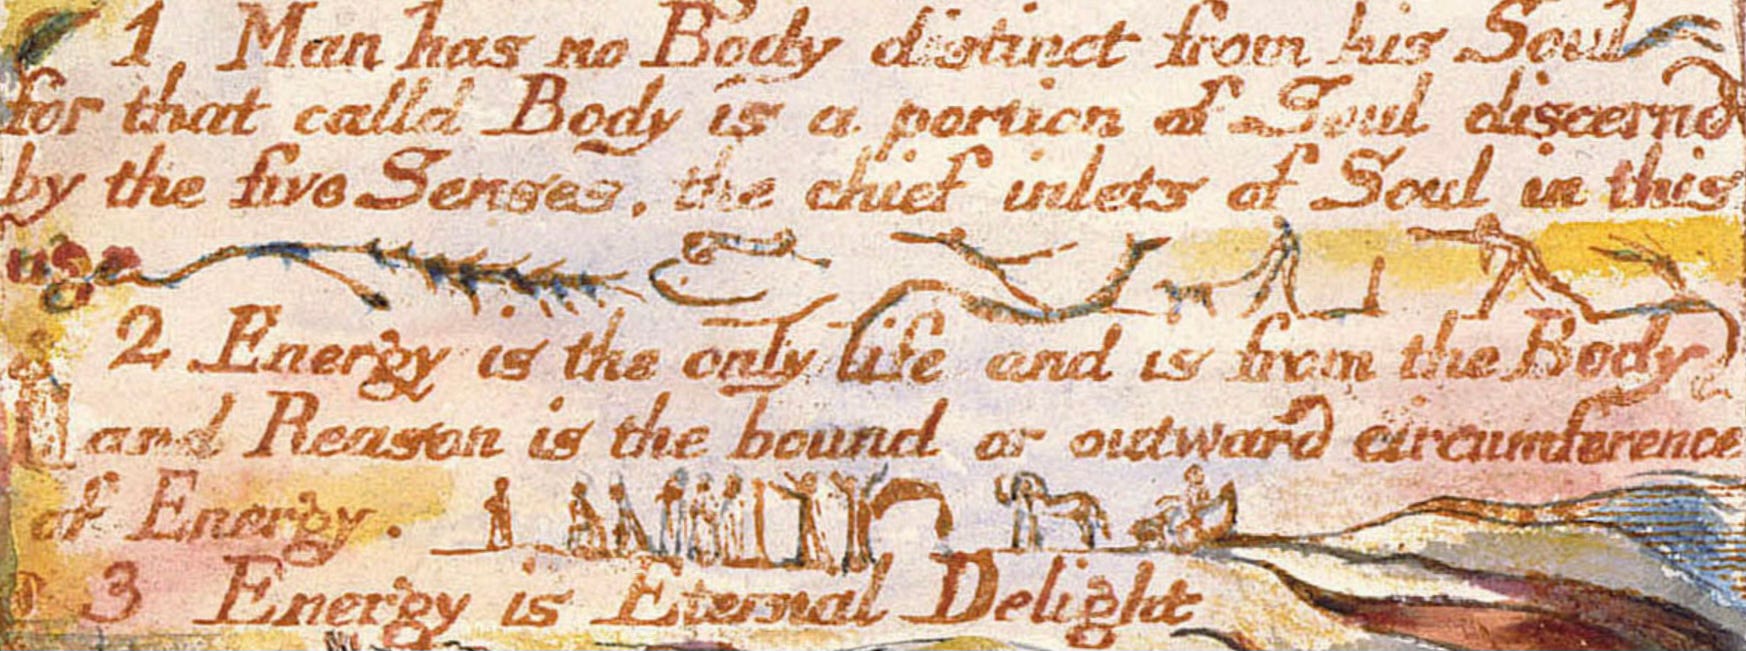 1 Man has no Body distinct from his Soul
for that calld Body is a portion of Soul discernd
by the five Senses, the chief inlets of Soul in this
age
2 Energy is the only life and is from the Body
and Reason is the bound or outward circumference
of Energy.
3 Energy is Eternal Delight